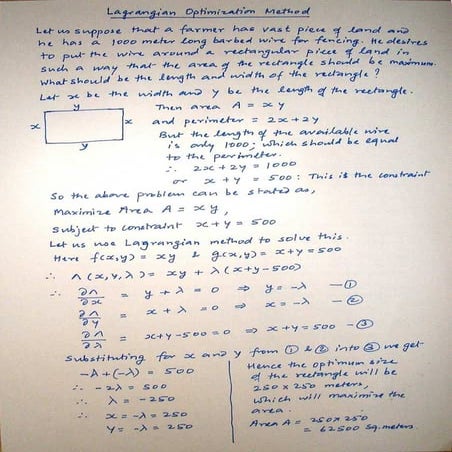 Lagrangian Optimization Method
Let us suppose that a farmer has vast piece of land and
he has a 1000 meter long barbed wire for fencing. He desires
to put the wire around a rectangular piece of land in
such a way that the area of the rectangle should be maximum.
What should be the length and width of the rectangle?
Let x be the width and y be the length of the rectangle.
y
x
x
y
Then area A = xy
and perimeter = 2x+2y
But the length of the available wire
is only 1000; which should be equal
to the perimeter.
∴ 2x + 2y = 1000
or x + y = 500 : This is the constraint
So the above problem can be stated as,
Maximize Area A = xy,
Subject to constraint x+y = 500
Let us use Lagrangian method to solve this.
Here f(x,y) = xy & g(x,y) = x+y = 500
∴ Λ(x,y,λ) = xy + λ(x+y-500)
∴ ∂Λ/∂x = y + λ = 0 ⇒ y = -λ —①
∂Λ/∂y = x + λ = 0 ⇒ x = -λ —②
∂Λ/∂λ = x+y-500 = 0 ⇒ x+y = 500 —③
Substituting for x and y from ① & ② into ③ we get-
-λ+(-λ) = 500
∴ -2λ = 500
∴ λ = -250
∴ x = -λ = 250
y = -λ = 250
Hence the optimum size
of the rectangle will be
250 x 250 meters,
which will maximize the
area.
Area A = 250x250
= 62500 sq.meters.